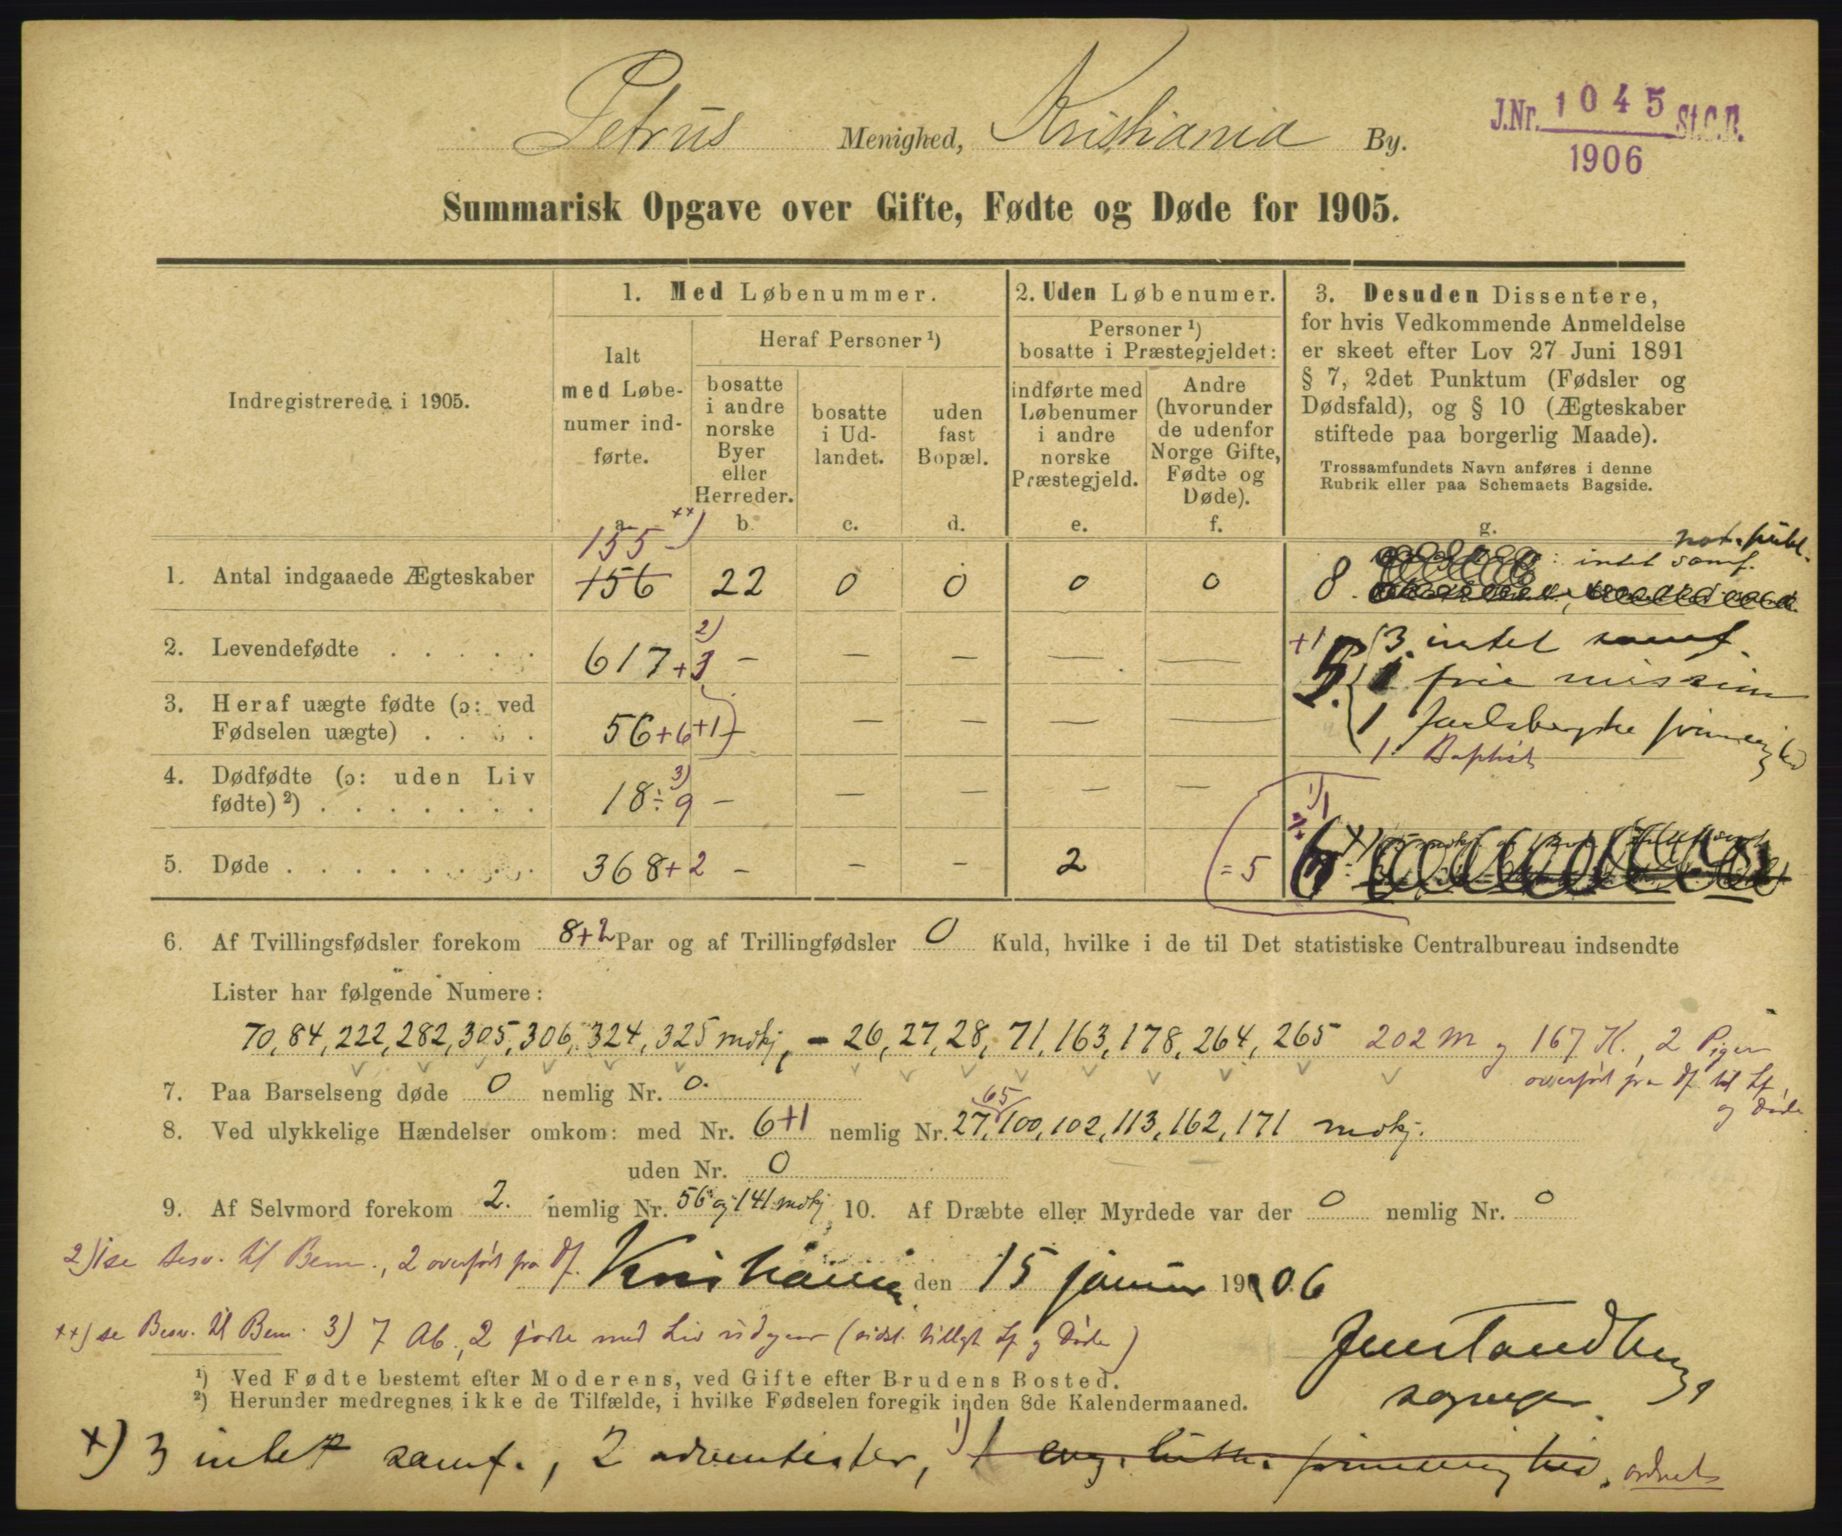 Petrus Menighed, Kristiania By.
J.Nr. 1045 St.C.B.
1906
Summarisk Opgave over Gifte, Fødte og Døde for 1905.
Indregistrerede i 1905.
1. Med Løbenummer.
Ialt
med Løbe-
numer ind-
førte.
a.
Heraf Personer ¹)
bosatte
i andre
norske
Byer
eller
Herreder.
b.
bosatte
i Ud-
landet.
c.
uden
fast
Bopæl.
d.
2. Uden Løbenumer.
Personer ¹)
bosatte i Præstegjeldet:
indførte med
Løbenumer
i andre
norske
Præstegjeld.
e.
Andre
(hvorunder
de udenfor
Norge Gifte,
Fødte og
Døde).
f.
3. Desuden Dissentere,
for hvis Vedkommende Anmeldelse
er skeet efter Lov 27 Juni 1891
§ 7, 2det Punktum (Fødsler og
Dødsfald), og § 10 (Ægteskaber
stiftede paa borgerlig Maade).
Trossamfundets Navn anføres i denne
Rubrik eller paa Schemaets Bagside.
g.
155 xx)
1. Antal indgaaede Ægteskaber 156 22 0 0 0 0 8. intet samf.
2. Levendefødte 617 +3 2) — — — — — +1 5. 3 intet samf.
1 frie mission
3. Heraf uægte fødte (ɔ: ved
Fødselen uægte) 56 +6 +1) — — — — — 1 Jarlsbergske frimenighed
1. Baptist
4. Dødfødte (ɔ: uden Liv
fødte) ²) 18 ÷ 9 3) — — — — —
5. Døde 368 +2 — — — 2 = 5 6 x)
6. Af Tvillingsfødsler forekom 8+2 Par og af Trillingfødsler 0 Kuld, hvilke i de til Det statistiske Centralbureau indsendte
Lister har følgende Numere:
70, 84, 222, 282, 305, 306, 324, 325 mdkj, - 26, 27, 28, 71, 163, 178, 264, 265 202 M og 167 K., 2 Piger
overført fra Df til Lf.
og Døde
7. Paa Barselseng døde 0 nemlig Nr. 0.
8. Ved ulykkelige Hændelser omkom: med Nr. 6+1 nemlig Nr. 27, 65, 100, 102, 113, 162, 171 mdkj.
uden Nr. 0
9. Af Selvmord forekom 2. nemlig Nr. 56 og 141 mdkj 10. Af Dræbte eller Myrdede var der 0 nemlig Nr. 0
2) 1 se Besv. til Bem., 2 overført fra Df.
Kristiania den 15 januar 1906
xx) se Besv. til Bem. 3) 7 Ab., 2 fødte med Liv udgaar (indst. tillagt Lf og Døde)
Jens Tandberg
sogneprest
¹) Ved Fødte bestemt efter Moderens, ved Gifte efter Brudens Bosted.
²) Herunder medregnes ikke de Tilfælde, i hvilke Fødselen foregik inden 8de Kalendermaaned.
x) 3 intet samf., 2 adventister, 1) 1 evg. luth. frimenighed. ordnet